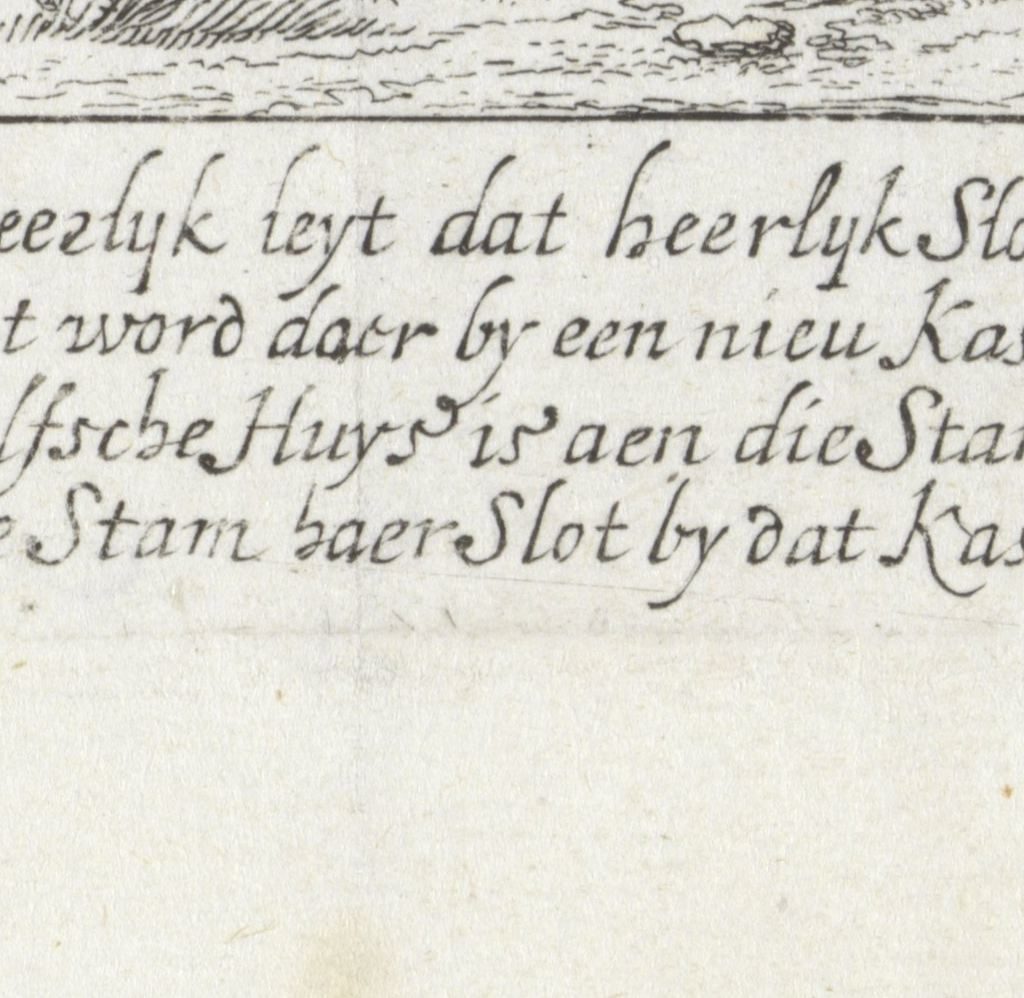 eerlyk leyt dat heerlyk Slo
t word daer by een nieu Kas
lfsche Huys is aen die Stam
e Stam haer Slot by dat Kas